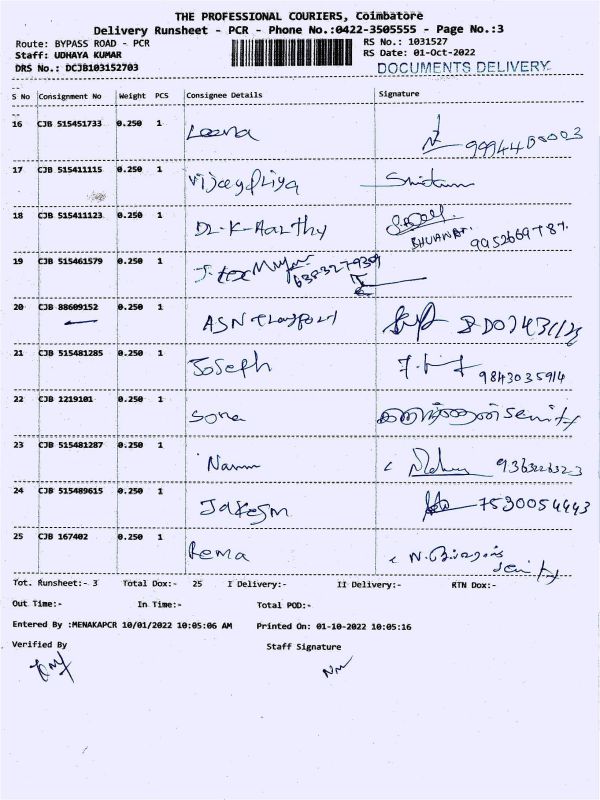 THE PROFESSIONAL COURIERS, Coimbatore
Delivery Runsheet - PCR - Phone No.:0422-3505555 - Page No.:3
Route: BYPASS ROAD - PCR RS No.: 1031527
Staff: UDHAYA KUMAR RS Date: 01-Oct-2022
DRS No.: DCJB103152703 DOCUMENTS DELIVERY
S No Consignment No Weight PCS Consignee Details Signature
16 CJB 515451733 0.250 1 Leena
17 CJB 515411115 0.250 1 Vijaypriya
18 CJB 515411123 0.250 1 Dr-K-Aarthy
BHUVANA. 9952669787.
19 CJB 515461579 0.250 1
6383279309
20 CJB 88609152 0.250 1 ASN Transport
21 CJB 515481285 0.250 1 Joseph
9843035914
22 CJB 1219101 0.250 1 Sona Senity
23 CJB 515481287 0.250 1
24 CJB 515489615 0.250 1 7530054443
25 CJB 167402 0.250 1 Rema
Senity
Tot. Runsheet:- 3 Total Dox:- 25 I Delivery:- II Delivery:- RTN Dox:-
Out Time:- In Time:- Total POD:-
Entered By :MENAKAPCR 10/01/2022 10:05:06 AM Printed On: 01-10-2022 10:05:16
Verified By Staff Signature